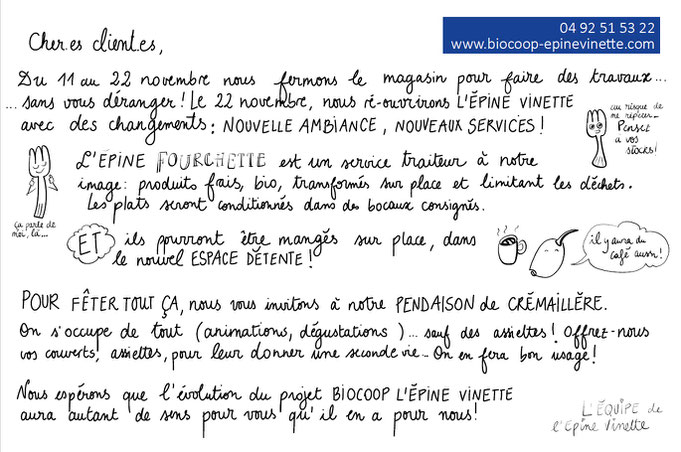 04 92 51 53 22
www.biocoop-epinevinette.com
Cher.es client.es,
Du 11 au 22 novembre nous fermons le magasin pour faire des travaux...
... sans vous déranger ! Le 22 novembre, nous ré-ouvrirons L'ÉPINE VINETTE
avec des changements : NOUVELLE AMBIANCE, NOUVEAUX SERVICES !
au risque de
me répéter...
PENSEZ
à vos
STOCKS !
L'ÉPINE FOURCHETTE est un service traiteur à notre
image : produits frais, bio, transformés sur place et limitant les déchets.
Les plats seront conditionnés dans des bocaux consignés.
ça parle de
moi, là...
ET ils pourront être mangés sur place, dans
le nouvel ESPACE DÉTENTE !
il y aura du
café aussi !
POUR FÊTER TOUT ÇA, nous vous invitons à notre PENDAISON de CRÉMAILLÈRE.
On s'occupe de tout (animations, dégustations)... sauf des assiettes ! Offrez-nous
vos couverts, assiettes, pour leur donner une seconde vie... On en fera bon usage !
Nous espérons que l'évolution du projet BIOCOOP L'ÉPINE VINETTE
aura autant de sens pour vous qu'il en a pour nous !
L'ÉQUIPE de
l'Epine Vinette